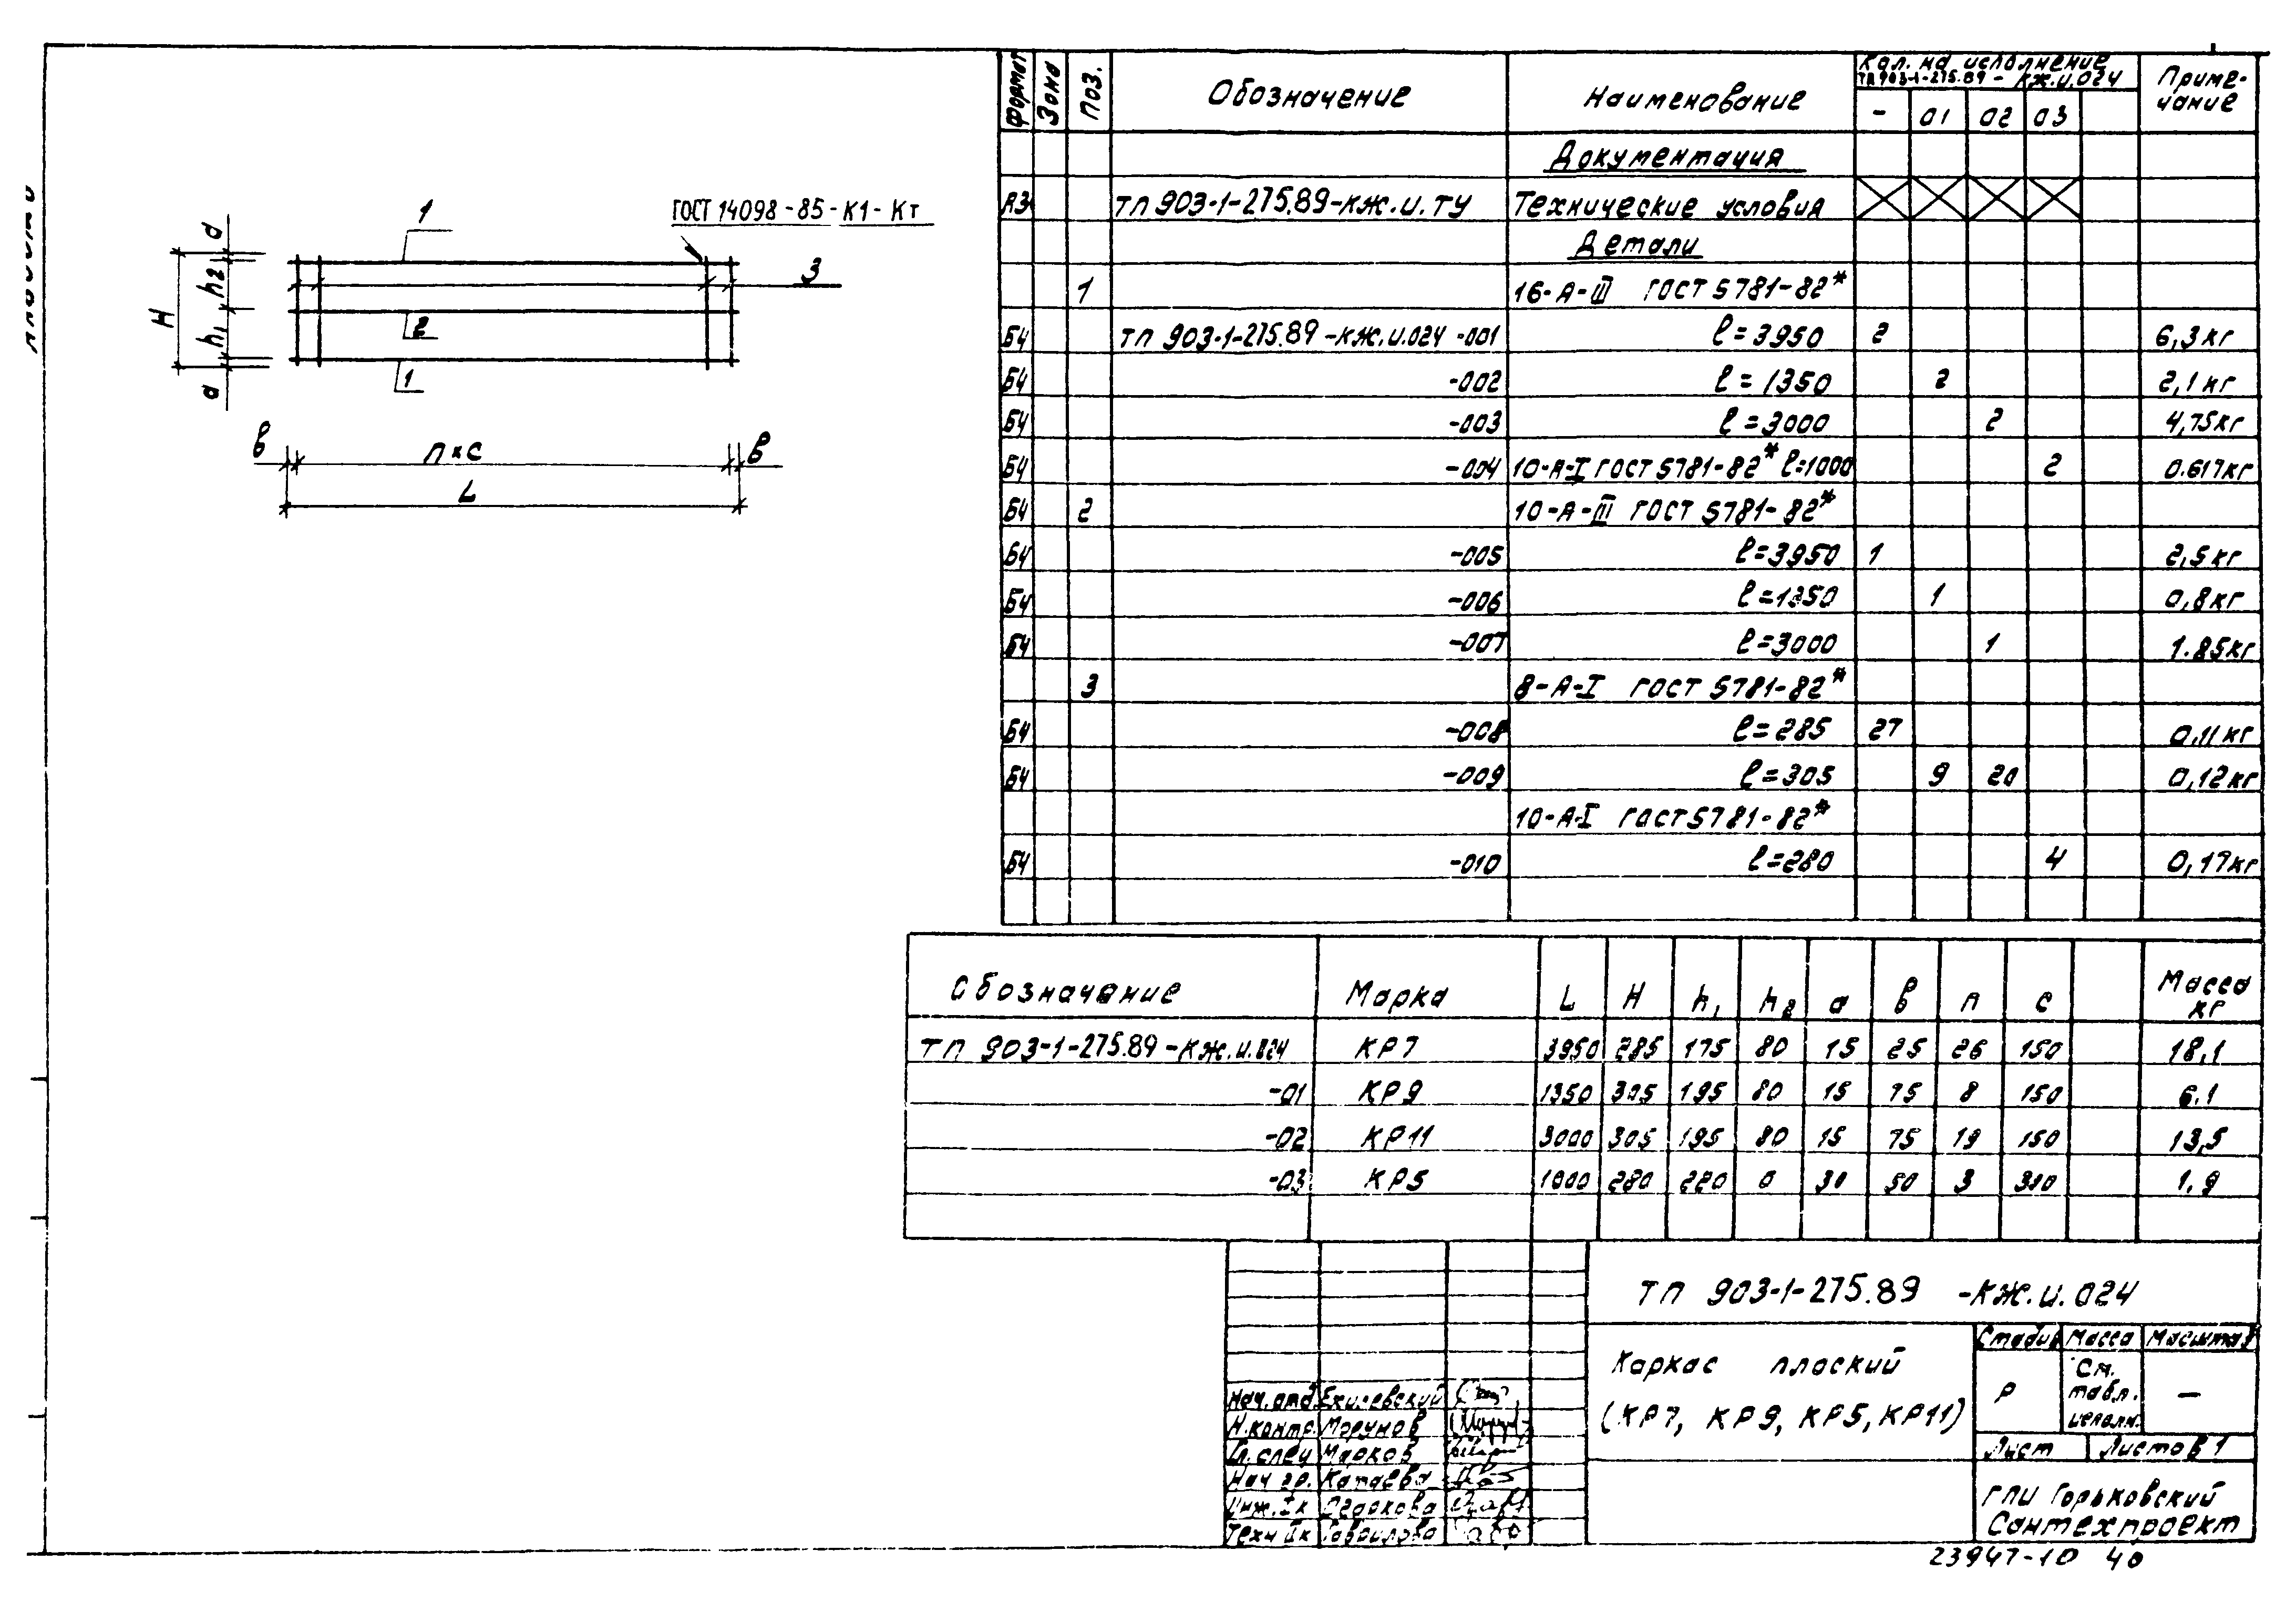 Формат Зона Поз. Обозначение Наименование Кол. на исполнение ТП 903-1-275.89 - КЖ.И.024 Приме-чание
- 01 02 03
Документация
А3 ТП 903-1-275.89-КЖ.И.ТУ Технические условия
Детали
1 16-А-III ГОСТ 5781-82*
Б4 ТП 903-1-275.89-КЖ.И.024 -001 ℓ=3950 2 6,3кг
Б4 -002 ℓ=1350 2 2,1кг
Б4 -003 ℓ=3000 2 4,75кг
Б4 -004 10-А-I ГОСТ 5781-82* ℓ=1000 2 0.617кг
Б4 2 10-А-III ГОСТ 5781-82*
Б4 -005 ℓ=3950 1 2,5кг
Б4 -006 ℓ=1350 1 0,8кг
Б4 -007 ℓ=3000 1 1.85кг
3 8-А-I ГОСТ 5781-82*
Б4 -008 ℓ=285 27 0,11кг
Б4 -009 ℓ=305 9 20 0,12кг
10-А-I ГОСТ 5781-82*
Б4 -010 ℓ=280 4 0,17кг
1
ГОСТ 14098-85-К1-Кт
3
2
1
H
a
h2
h1
a
в n×c в
L
Обозначение Марка L H h1 h2 a в n c Масса кг
ТП 903-1-275.89-КЖ.И.024 КР7 3950 285 175 80 15 25 26 150 18,1
-01 КР9 1350 305 195 80 15 75 8 150 6.1
-02 КР11 3000 305 195 80 15 75 19 150 13,5
-03 КР5 1000 280 220 0 30 50 3 300 1.9
ТП 903-1-275.89 -КЖ.И.024
Каркас плоский
(КР7, КР9, КР5, КР11)
Стадия Масса Масштаб
Р См. табл. исполн. –
Лист Листов 1
ГПИ Горьковский
Сантехпроект
Нач.отд.
Н.контр. Морунов
Гл.спец Марков
Нач гр. Катаева
Инж.Iк Огаркова
Техн IIк Гаврилова
23947-10 40